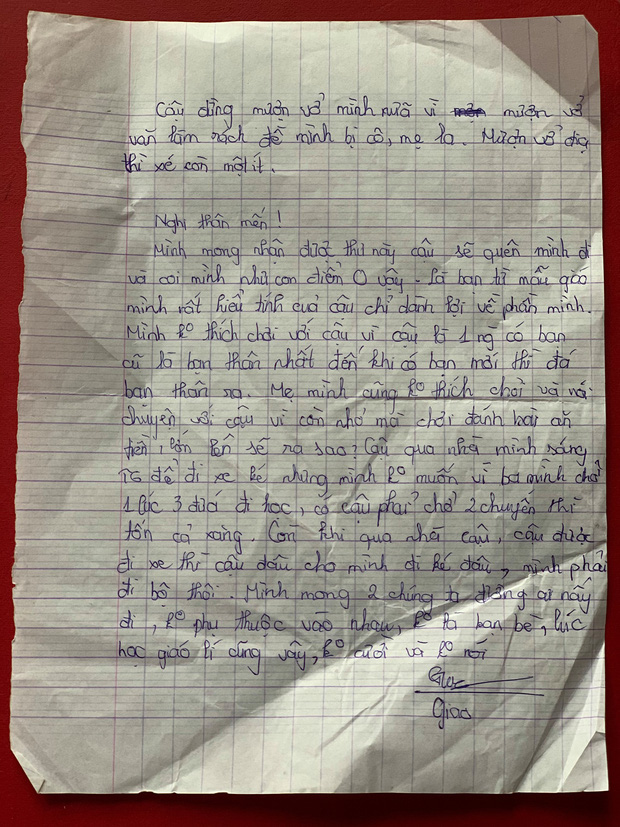 Cậu đừng mượn vở mình nữa vì mượn vở
văn làm rách để mình bị cô, mẹ la. Mượn vở địa
thì xé còn một ít.
Nghi thân mến!
Mình mong nhận được thư này cậu sẽ quên mình đi
và coi mình như con điểm 0 vậy. Là bạn từ mẫu giáo
mình rất hiểu tính của cậu chỉ dành lợi về phần mình.
Mình ko thích chơi với cậu vì cậu là 1 ng có bạn
cũ là bạn thân nhất đến khi có bạn mới thì đá
bạn thân ra. Mẹ mình cũng ko thích chơi và nói
chuyện với cậu vì còn nhỏ mà chơi đánh bài ăn
tiền, lớn lên sẽ ra sao? Cậu qua nhà mình sáng
T6 để đi xe ké nhưng mình ko muốn vì ba mình chở
1 lúc 3 đứa đi học, có cậu phải chở 2 chuyến thì
tốn cả xăng. Còn khi qua nhà cậu, cậu được
đi xe thì cậu đâu cho mình đi ké đâu, mình phải
đi bộ thôi. Mình mong 2 chúng ta đường ai nấy
đi, ko phụ thuộc vào nhau, ko là bạn bè, lúc
học giáo lí cũng vậy, ko cười và ko nói
Giao